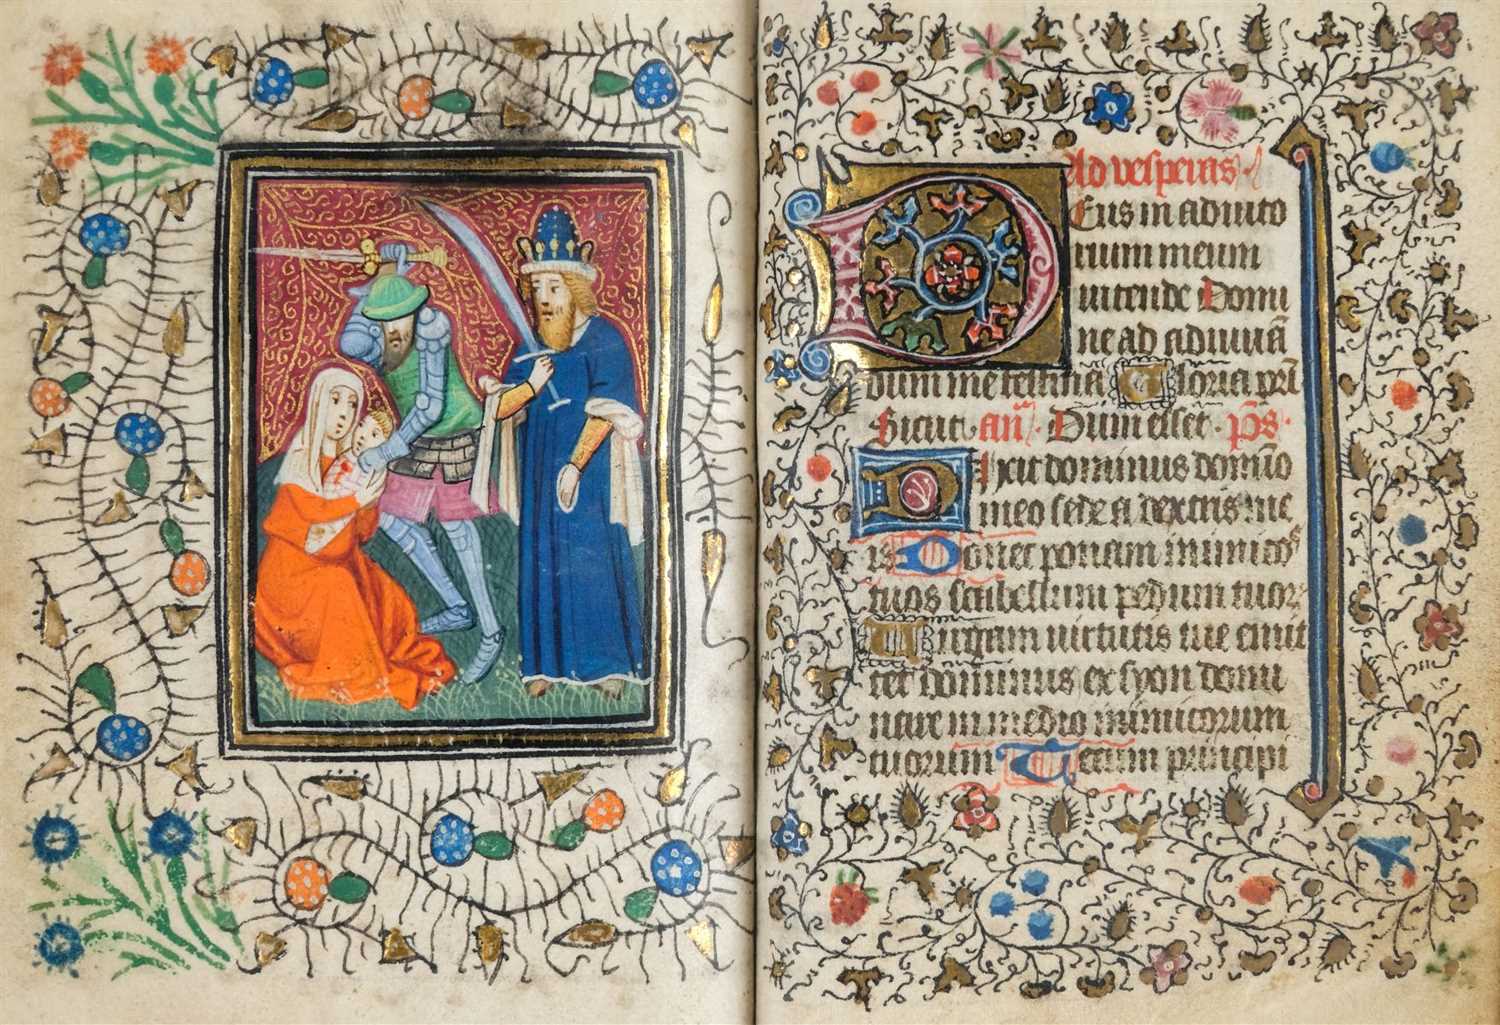 Ad vesperas.
Deus in adiuto
rium meum
intende Domi
ne ad adiuuā
dum me festina Gloria pri
Sicut. añ. Dum esset. ps.
Dixit dominus domīo
meo sede a dextris me
is Donec ponam inimicos
tuos scabellum pedum tuor
Uirgam uirtutis tue emit
tet dominus ex syon domi
nare in medio inimicorum
tuorum Tecum principi